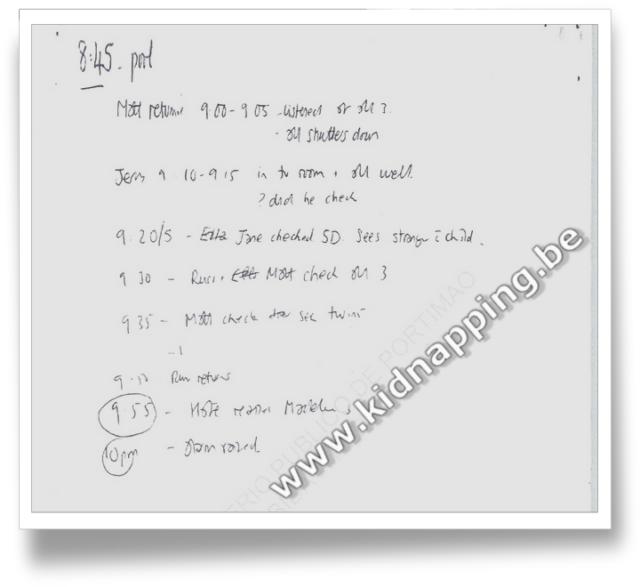 8:45. pool
Matt returns 9.00-9.05 - listened at all 3
- all shutters down
Jerry 9.10-9.15 in the room + all well.
? did he check
9.20/5 - Ella Jane checked 5D. Sees stranger & child.
9.30 - Russ + Ella Matt check all 3
9.35 - Matt check see twins
9 Russ returns
9.55 - Kate realises Madeleine
10pm - Alarm raised
www.kidnapping.be
PUBLICO DE PORTIMAO